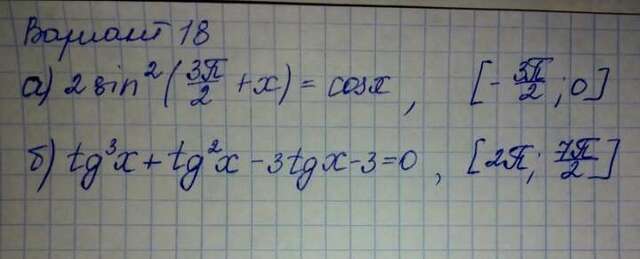 Вариант 18
а) 2 sin²(3π/2 + x) = cosx, [-3π/2; 0]
б) tg³x + tg²x - 3tgx - 3 = 0, [2π; 7π/2]